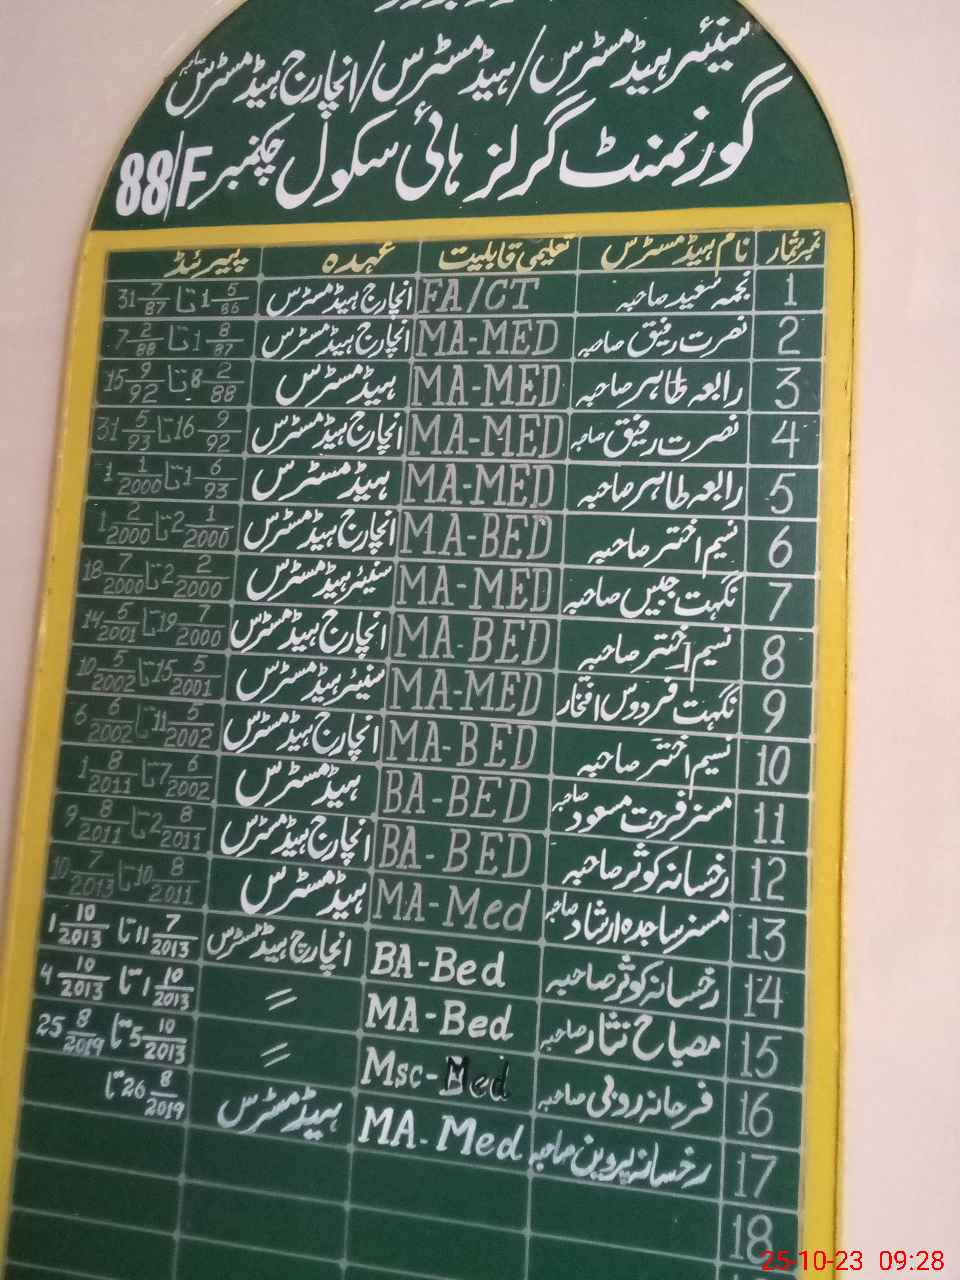 سینئر ہیڈمسٹرس/ہیڈمسٹرس/انچارج ہیڈمسٹرس صاحبہ
گورنمنٹ گرلز ہائی سکول چکنمبر 88/F
نمبرشمار نام ہیڈمسٹرس تعلیمی قابلیت عہدہ پیریڈ
1 نجمہ سعید صاحبہ FA/CT انچارج ہیڈمسٹرس 1 5/86 تا 31 7/87
2 نصرت رفیق صاحبہ MA-MED انچارج ہیڈمسٹرس 1 8/87 تا 7 2/88
3 رابعہ طاہر صاحبہ MA-MED ہیڈمسٹرس 8 2/88 تا 15 9/92
4 نصرت رفیق صاحبہ MA-MED انچارج ہیڈمسٹرس 16 9/92 تا 31 5/93
5 رابعہ طاہر صاحبہ MA-MED ہیڈمسٹرس 1 6/93 تا 1 1/2000
6 نسیم اختر صاحبہ MA-BED انچارج ہیڈمسٹرس 2 1/2000 تا 1 2/2000
7 نگہت جبیں صاحبہ MA-MED سنیئر ہیڈمسٹرس 2 2/2000 تا 18 7/2000
8 نسیم اختر صاحبہ MA-BED انچارج ہیڈمسٹرس 19 7/2000 تا 14 5/2001
9 نگہت فردوس افتخار MA-MED سنیئر ہیڈمسٹرس 15 5/2001 تا 10 5/2002
10 نسیم اختر صاحبہ MA-BED انچارج ہیڈمسٹرس 11 5/2002 تا 6 6/2002
11 مسز فرحت مسعود صاحبہ BA-BED ہیڈمسٹرس 7 6/2002 تا 1 8/2011
12 رخسانہ کوثر صاحبہ BA-BED انچارج ہیڈمسٹرس 2 8/2011 تا 9 8/2011
13 مسز ساجدہ ارشاد صاحبہ MA-Med ہیڈمسٹرس 10 8/2011 تا 10 7/2013
14 رخسانہ کوثر صاحبہ BA-Bed انچارج ہیڈمسٹرس 11 7/2013 تا 1 10/2013
15 مصباح نثار صاحبہ MA-Bed 〃 1 10/2013 تا 4 10/2013
16 فرحانہ روبی صاحبہ Msc-Med 〃 5 10/2013 تا 25 8/2019
17 رخسانہ پروین صاحبہ MA-Med ہیڈمسٹرس 26 8/2019 تا
18
25-10-23 09:28